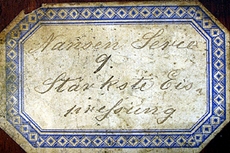 Nansen Serie
9.
Stärkste Eis-
pressung